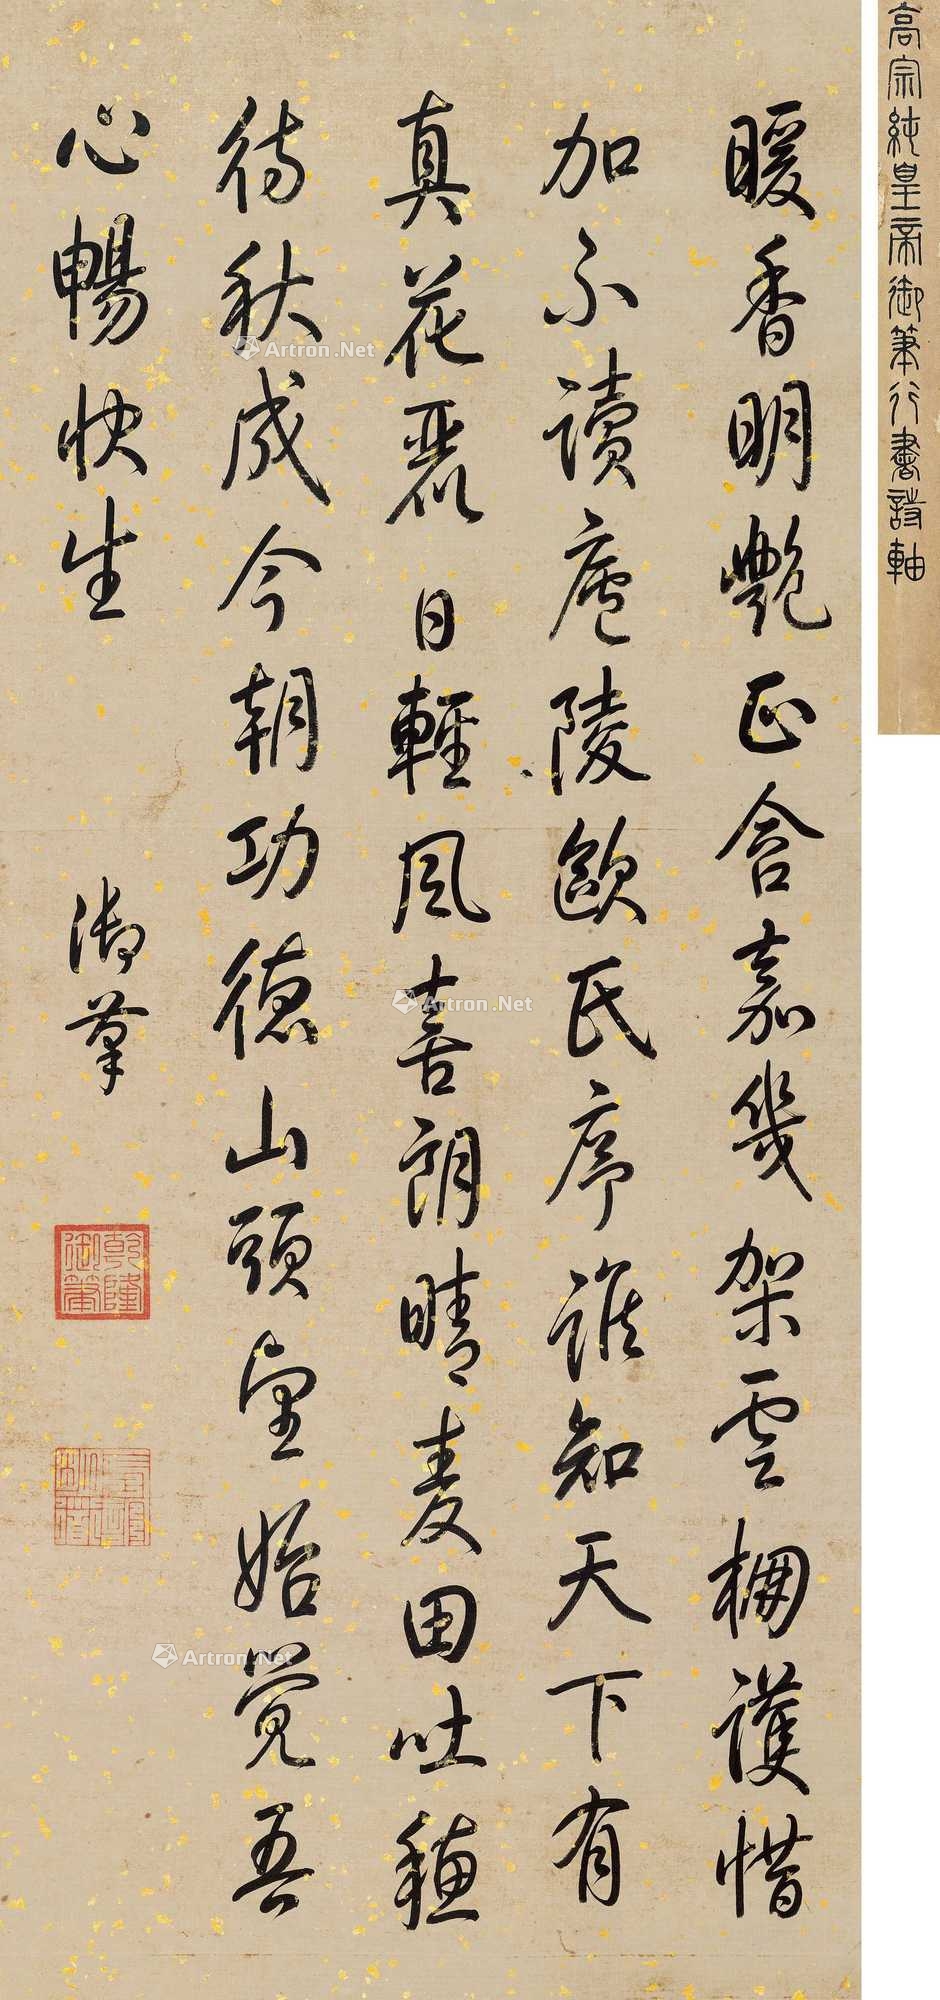 高宗純皇帝御筆行書詩軸
暖香明艷正含嘉幾架雲棚護惜
加不讀廬陵歐氏序誰知天下有
真花麗日輕風喜朗晴麦田吐穗
待秋成今朝功德山頭望始覺吾
心暢快生
御筆
乾隆御筆
Artron.Net
Artron.Net
Artron.Net